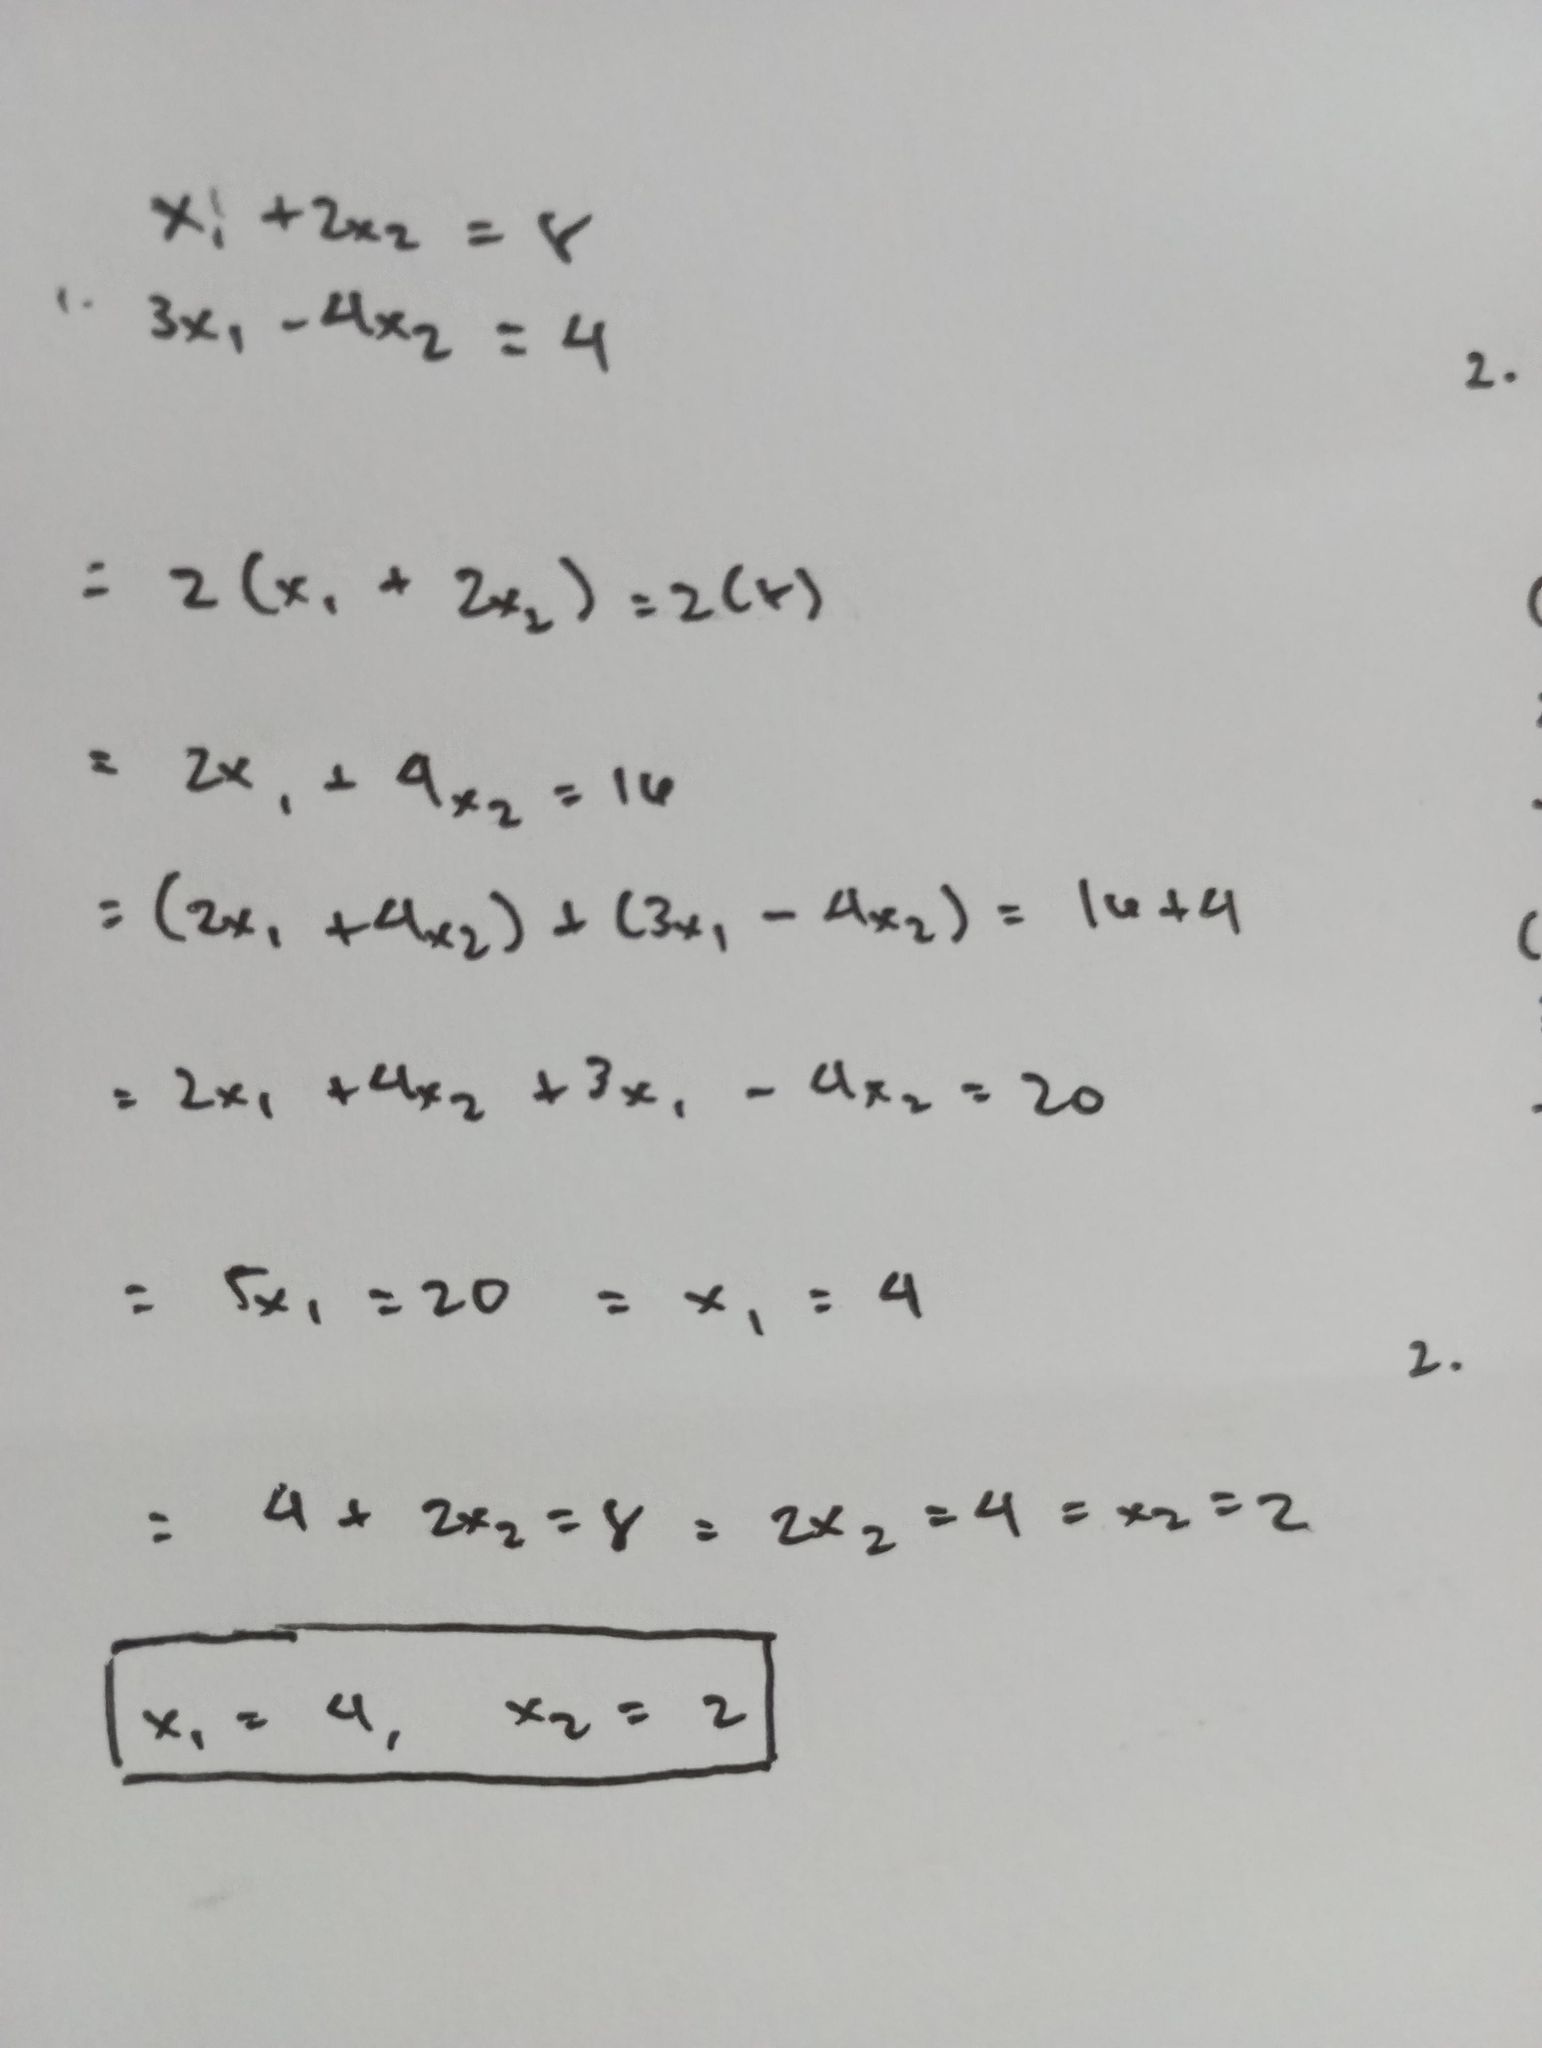 x₁ + 2x₂ = 8
1. 3x₁ - 4x₂ = 4
2.
= 2(x₁ + 2x₂) = 2(8)
= 2x₁ + 4x₂ = 16
= (2x₁ + 4x₂) + (3x₁ - 4x₂) = 16+4
= 2x₁ + 4x₂ + 3x₁ - 4x₂ = 20
= 5x₁ = 20 = x₁ = 4
2.
= 4 + 2x₂ = 8 = 2x₂ = 4 = x₂ = 2
x₁ = 4, x₂ = 2